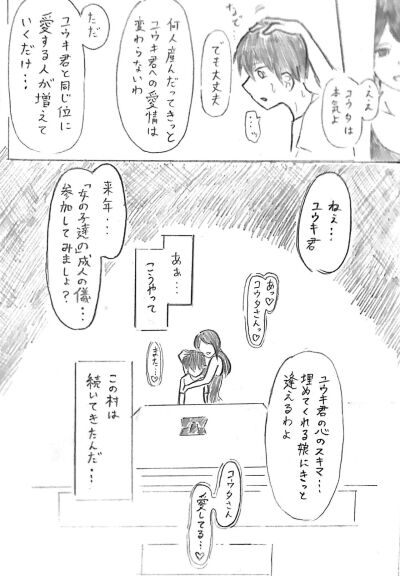 ええ
コウタは
本気よ
なで…
でも大丈夫
…ッ
何人産んだってきっと
ユウキ君への愛情は
変わらないわ
ただ
ユウキ君と同じ位に
愛する人が増えて
いくだけ…
ねぇ…
ユウキ君
来年…
「女の子達」の成人の儀…
参加してみましょ?
ユウキ君の心のスキマ…
埋めてくれる娘にきっと
逢えるわよ
あっ♡
コウタさんっ♡
また…♡
ああ…
こうやって
この村は
続いてきたんだ…
コウタさん
愛してる…♡